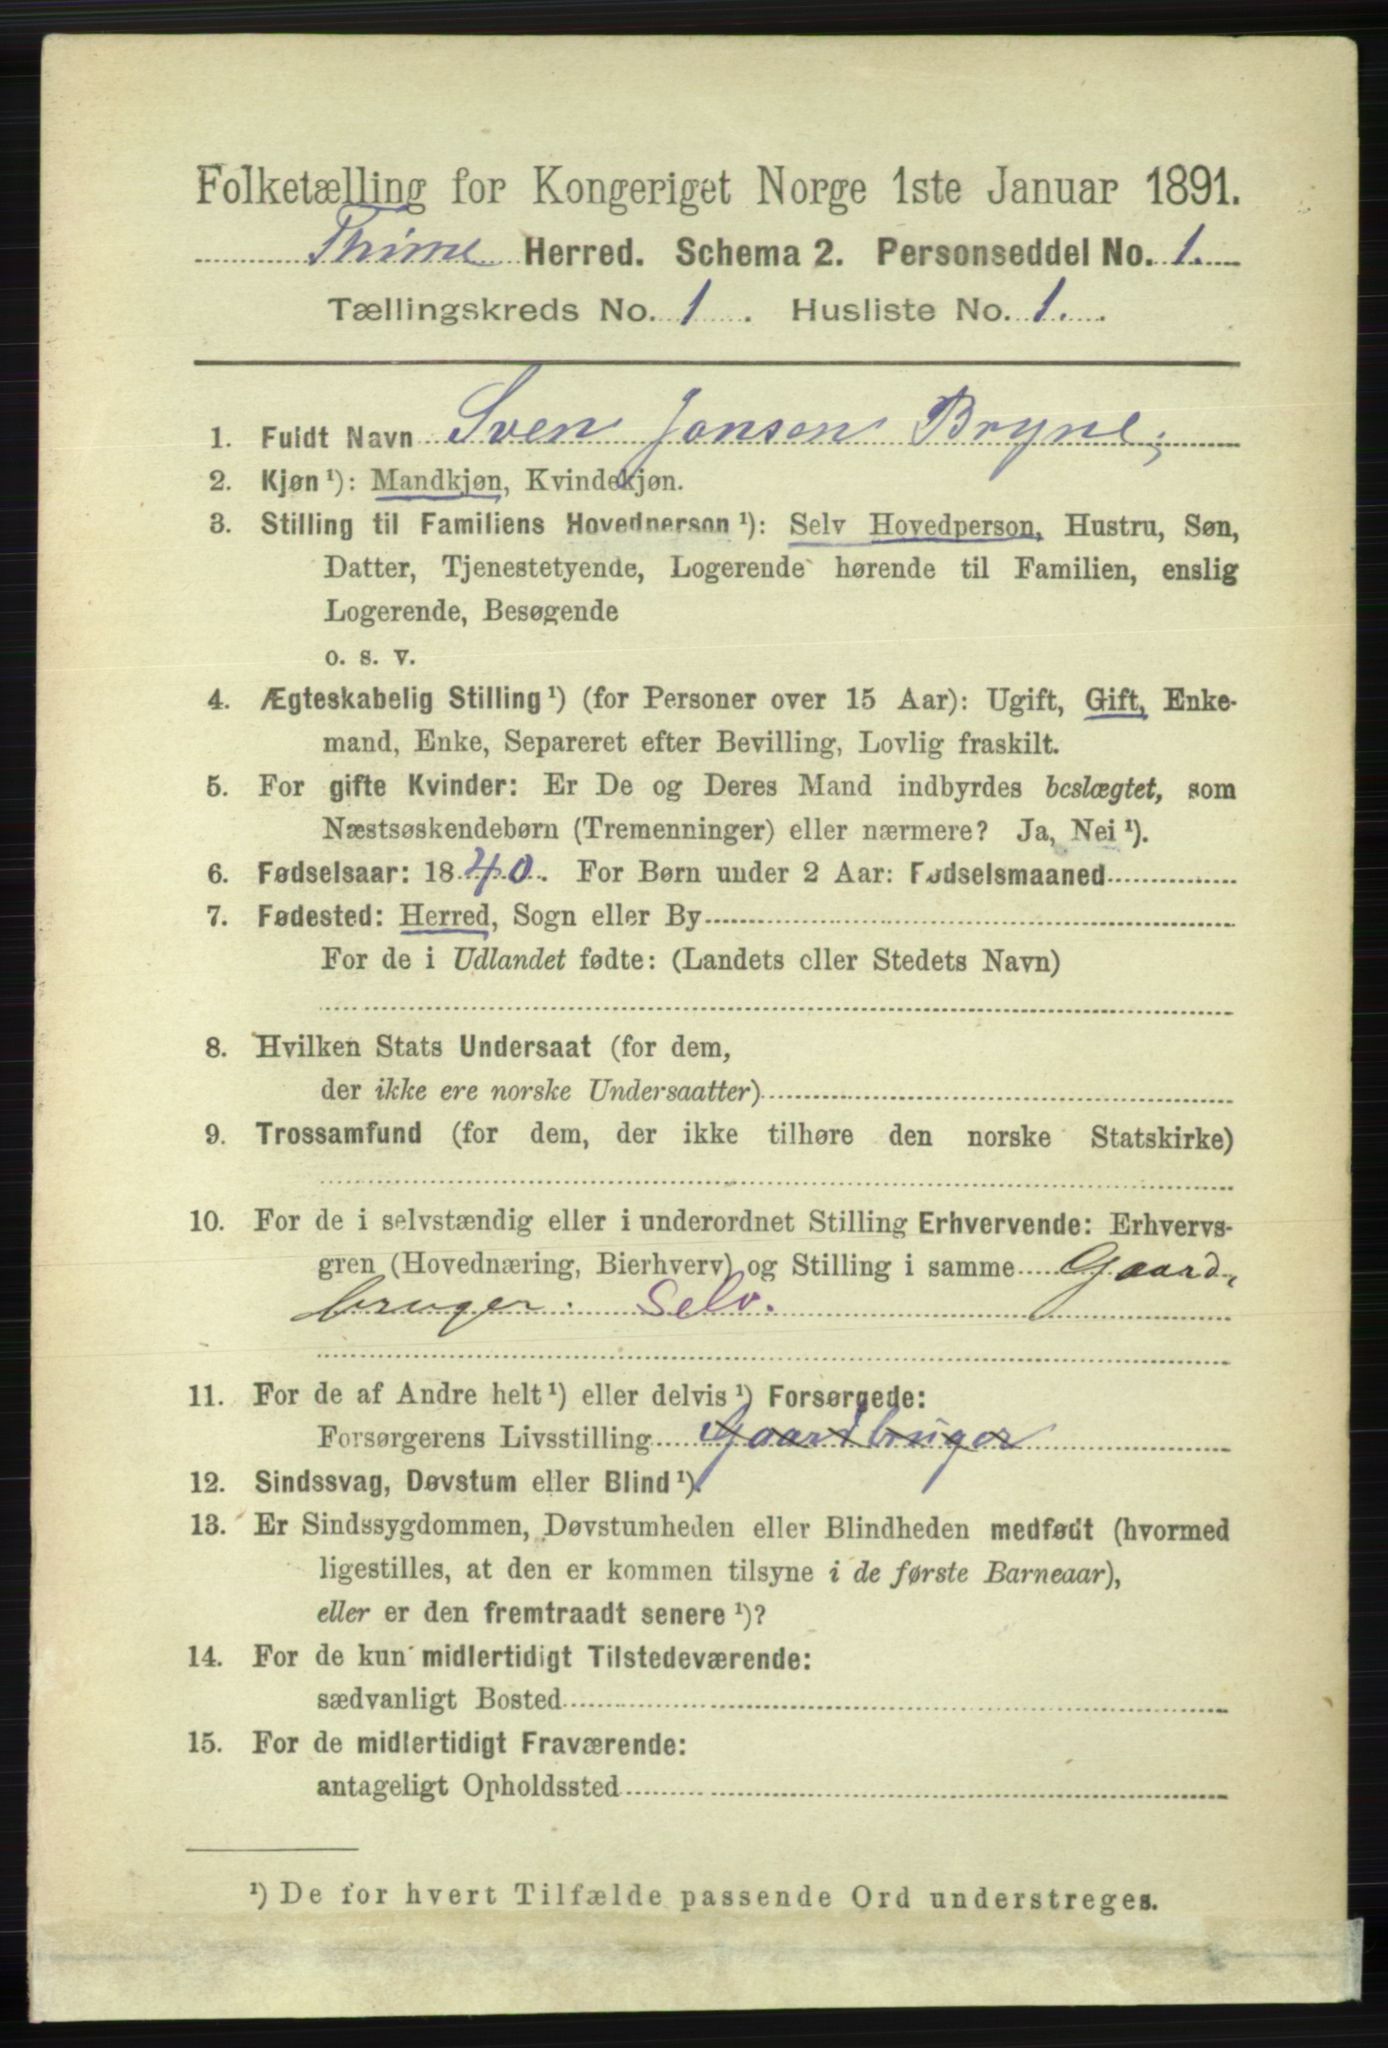 Folketælling for Kongeriget Norge 1ste Januar 1891.
Thime Herred. Schema 2. Personseddel No. 1.
Tællingskreds No. 1. Husliste No. 1.
1. Fuldt Navn Sven Jonsen Bryne,
2. Kjøn ¹): Mandkjøn, Kvindekjøn.
3. Stilling til Familiens Hovedperson ¹): Selv Hovedperson, Hustru, Søn,
Datter, Tjenestetyende, Logerende hørende til Familien, enslig
Logerende, Besøgende
o. s. v.
4. Ægteskabelig Stilling ¹) (for Personer over 15 Aar): Ugift, Gift, Enke-
mand, Enke, Separeret efter Bevilling, Lovlig fraskilt.
5. For gifte Kvinder: Er De og Deres Mand indbyrdes beslægtet, som
Næstsøskendebørn (Tremenninger) eller nærmere? Ja, Nei ¹).
6. Fødselsaar: 1840. For Børn under 2 Aar: Fødselsmaaned
7. Fødested: Herred, Sogn eller By
For de i Udlandet fødte: (Landets eller Stedets Navn)
8. Hvilken Stats Undersaat (for dem,
der ikke ere norske Undersaatter)
9. Trossamfund (for dem, der ikke tilhøre den norske Statskirke)
10. For de i selvstændig eller i underordnet Stilling Erhvervende: Erhvervs-
gren (Hovednæring, Bierhverv) og Stilling i samme Gaard-
bruger. Selv.
11. For de af Andre helt ¹) eller delvis ¹) Forsørgede:
Forsørgerens Livsstilling Gaardbruger
12. Sindssvag, Døvstum eller Blind ¹).
13. Er Sindssygdommen, Døvstumheden eller Blindheden medfødt (hvormed
ligestilles, at den er kommen tilsyne i de første Barneaar),
eller er den fremtraadt senere ¹)?
14. For de kun midlertidigt Tilstedeværende:
sædvanligt Bosted
15. For de midlertidigt Fraværende:
antageligt Opholdssted
¹) De for hvert Tilfælde passende Ord understreges.